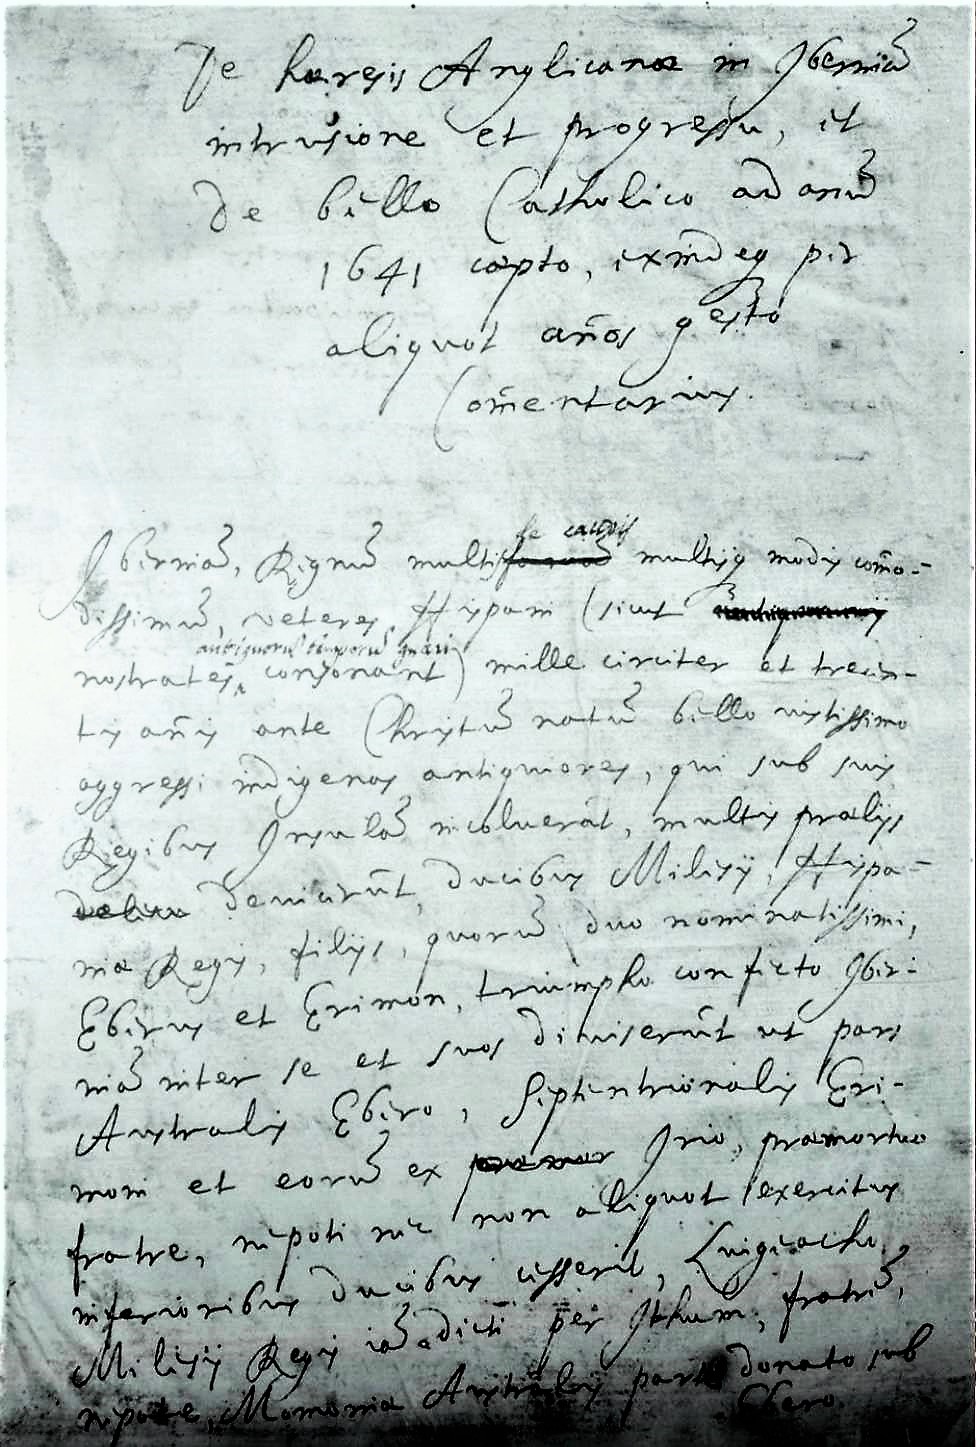 De hæresis Anglicanæ in Iberniā
intrusione et progressu, et
de bello Catholico ad anū
1641 cœpto, exindeq per
aliquot an̄os gesto
Com̄entarius.
se causis
Iberniā, Regnū multis multisq modis com̄o-
dissimū, veteres Hispani (sicut
antiquorū temporū gnari
nostrates, consonant) mille circiter et trecin-
tis an̄is ante Christū natū bello iustissimo
aggressi indigenas antiquiores, qui sub suis
Regibus Insulā incoluerāt, multis prælijs
devicerūt, ducibus Milisij, Hispa-
niæ Regis, filijs, quorū duo nominatissimi,
Eberus et Erimon, triumpho confecto Iber-
niā inter se et suos diviserūt ut pars
Australis Ebero, Septentrionalis Eri-
moni et eorū ex Irio, præmortuo
fratre, nepoti nec non aliquot exercitus
inferioribus ducibus cesserit, Luigeacho,
Milisij Regis iā dicti per Ithum, fratrē,
nepote, Momoniæ Australis parte donato sub
Ebero.